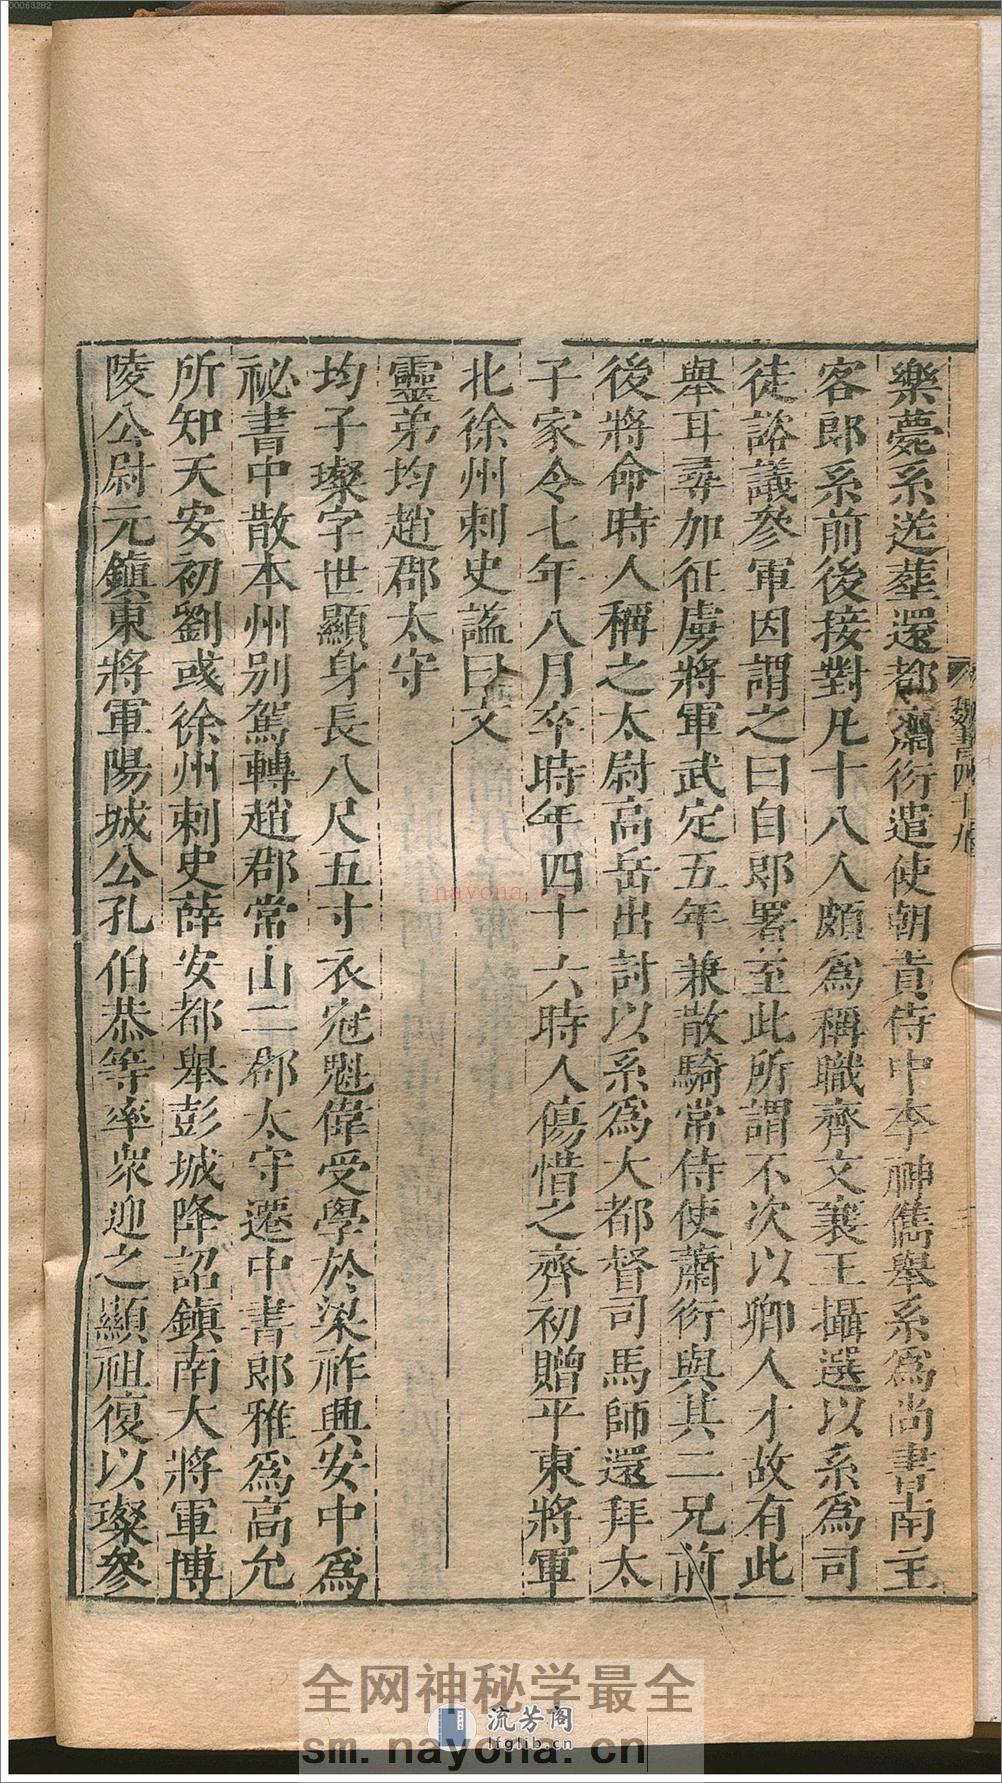 魏書四十九
樂薨系送葬還都蕭衍遣使朝貢侍中李神儁舉系爲尚書南主
客郎系前後接對凡十八人頗爲稱職齊文襄王攝選以系爲司
徒諮議參軍因謂之曰自郎署至此所謂不次以卿人才故有此
舉耳尋加征虜將軍武定五年兼散騎常侍使蕭衍與其二兄前
後將命時人稱之太尉高岳出討以系爲大都督司馬師還拜太
子家令七年八月卒時年四十六時人傷惜之齊初贈平東將軍
北徐州刺史諡曰文
靈弟均趙郡太守
均子璨字世顯身長八尺五寸衣冠魁偉受學於梁祚興安中爲
祕書中散本州別駕轉趙郡常山二郡太守遷中書郎雅爲高允
所知天安初劉彧徐州刺史薛安都舉彭城降詔鎮南大將軍博
陵公尉元鎮東將軍陽城公孔伯恭等率衆迎之顯祖復以璨參
00063282
nayona.cn
全网神秘学最全
流芳阁
lfglib.cn
sm.nayona.cn